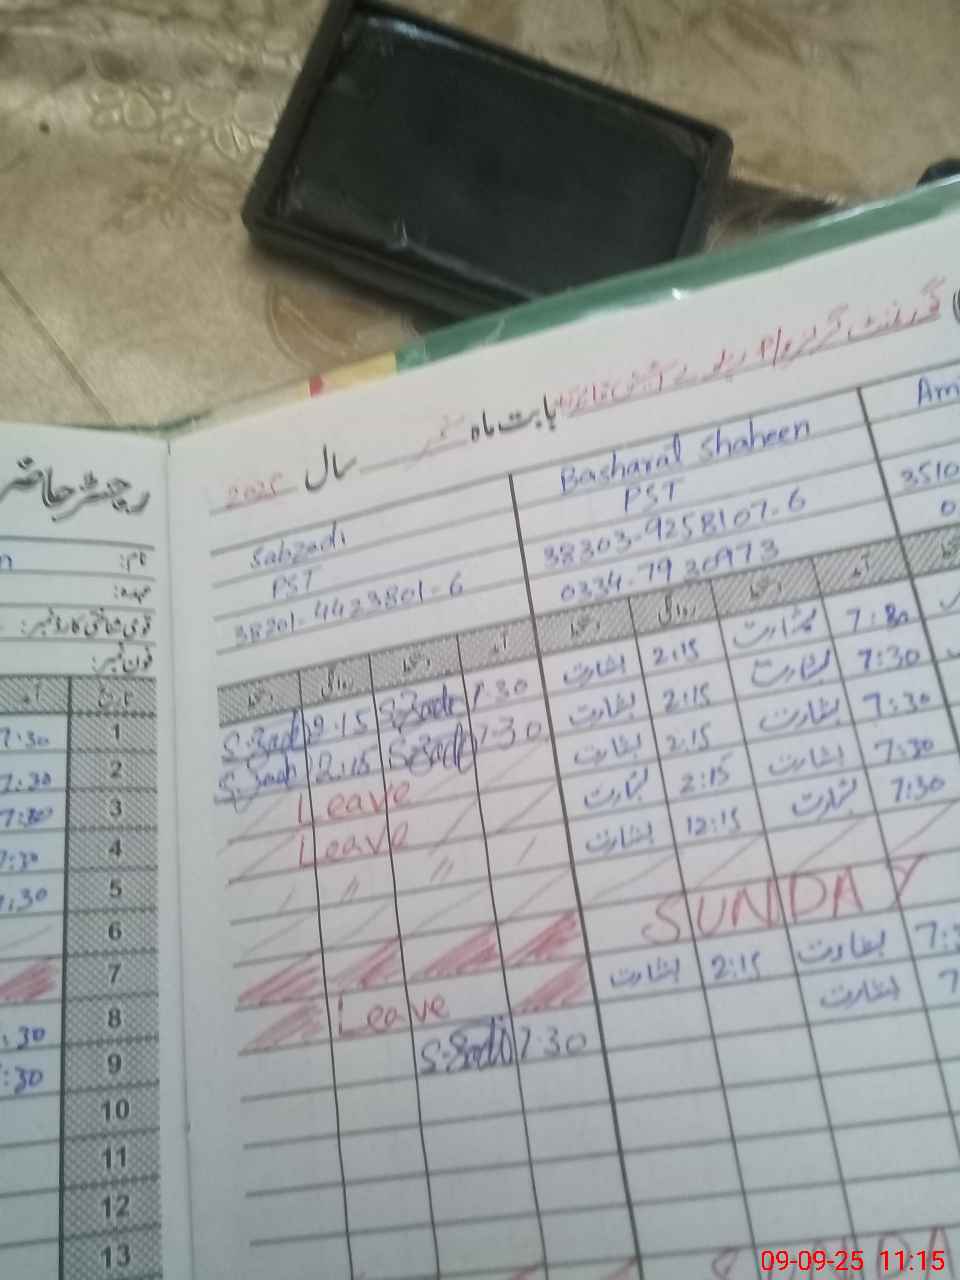 رجسٹر حاضر
بابت ماہ
سال 2025
نام:
عہدہ:
قومی شناختی کارڈ نمبر:
فون نمبر:
Sabzadi
PST
38201-4423801-6
Basharat Shaheen
PST
38303-9258107-6
0334-7930973
Am
3510
0
تاریخ آمد
دستخط روانگی دستخط آمد دستخط روانگی دستخط آمد
7:30 1 2:15 7:30 بشارت 2:15 بشارت 7:30
7:30 2 2:15 7:30 بشارت 2:15 بشارت 7:30
7:30 3 Leave بشارت 2:15 بشارت 7:30
7:30 4 Leave بشارت 2:15 بشارت 7:30
7:30 5 بشارت 12:15 بشارت 7:30
6
7 SUNDAY
:30 8 Leave بشارت 2:15 بشارت 7:3
:30 9 7:30 بشارت 7
10
11
12
13
09-09-25 11:15